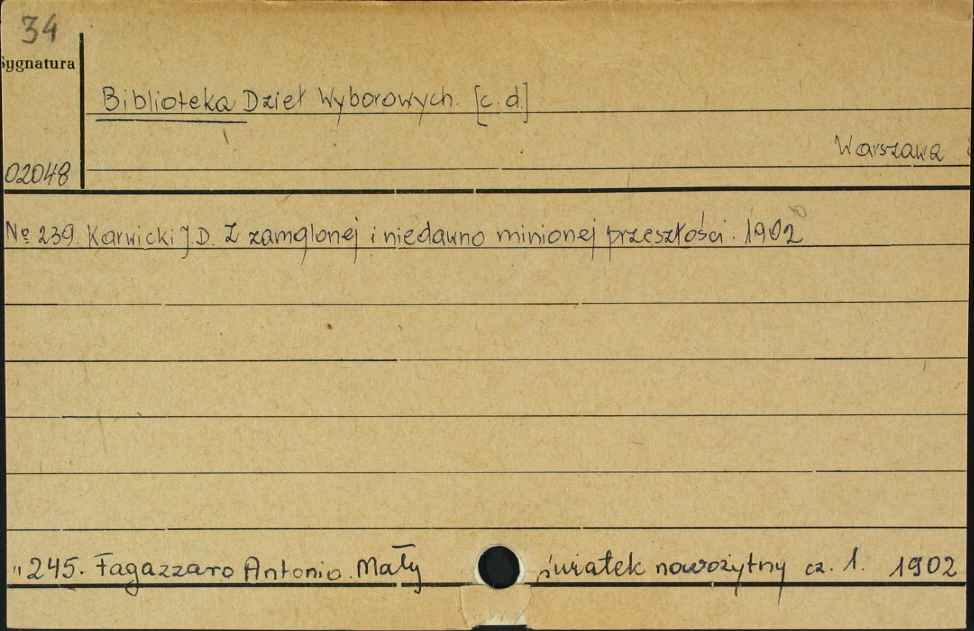 34
Sygnatura
Biblioteka Dzieł Wyborowych. [c.d.]
Warszawa
02048
№ 239. Karwicki J D. Z zamglonej i niedawno minionej przeszłości. 1902
" 245. Fagazzaro Antonio. Mały światek nowożytny cz. 1. 1902